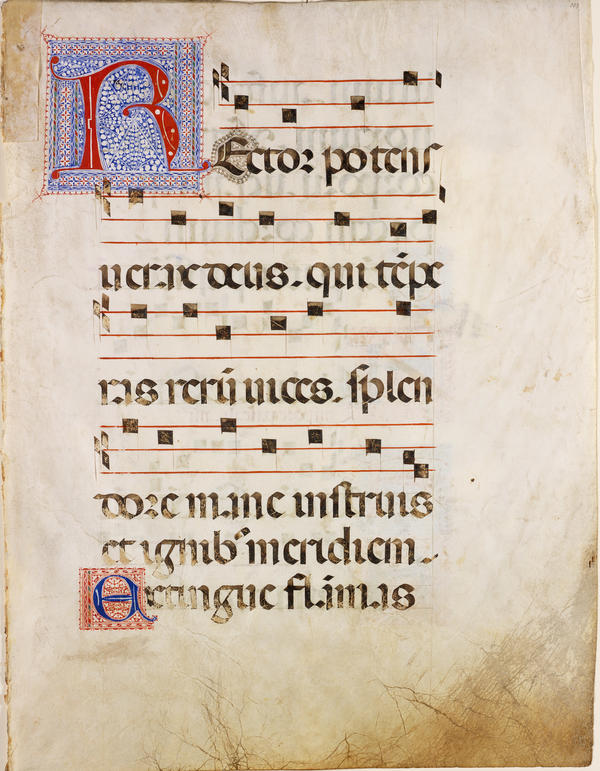 REctor potens
uerax deus. qui tēpe
ras rerū uices. splen
dore mane instruis
et ignib' meridiem.
Extingue flāmas